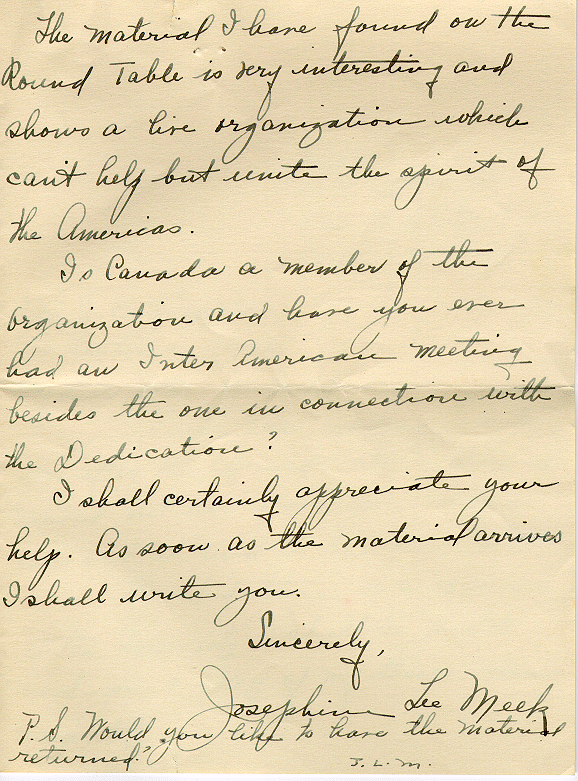 The material I have found on the
Round Table is very interesting and
shows a live organization which
can't help but unite the spirit of
the Americas.
Is Canada a member of the
organization and have you ever
had an Inter American meeting
besides the one in connection with
the Dedication?
I shall certainly appreciate your
help. As soon as the material arrives
I shall write you.
Sincerely,
Josephine Lee Meek
P.S. Would you like to have the material
returned?
J. L. M.